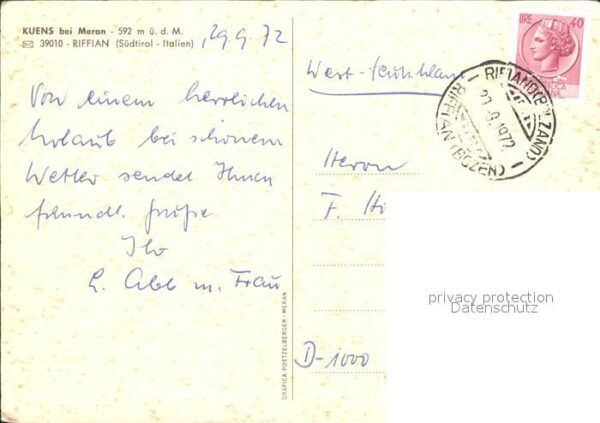 KUENS bei Meran - 592 m ü. d. M.
39010 - RIFFIAN (Südtirol - Italien)
29.9.72
Von einem herrlichen
Urlaub bei schönem
Wetter sendet Ihnen
freundl. Grüße
Ihr
L. Abb m. Frau
GRAFICA POETZELBERGER - MERAN
LIRE 40
RIFIANO (BOLZANO)
9.1972
RIFFIAN (BOZEN)
West-
Herrn
F.
D-1000
privacy protection
Datenschutz